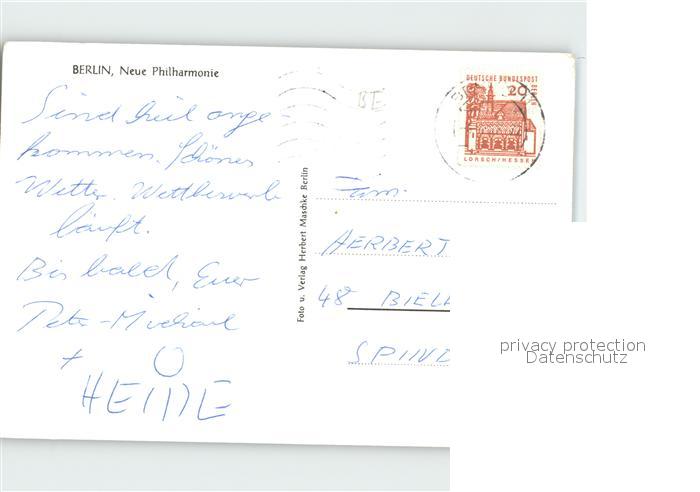 BERLIN, Neue Philharmonie
Sind heil ange-
kommen. Schönes
Wetter. Wettbewerb
läuft.
Bis bald, Euer
Peter-Michael
+
HEINE
BE
DEUTSCHE BUNDESPOST
BERLIN
20
LORSCH/HESSEN
Foto u. Verlag Herbert Maschke Berlin
Fam.
HERBERT
48 BIEL
SPIND
privacy protection
Datenschutz